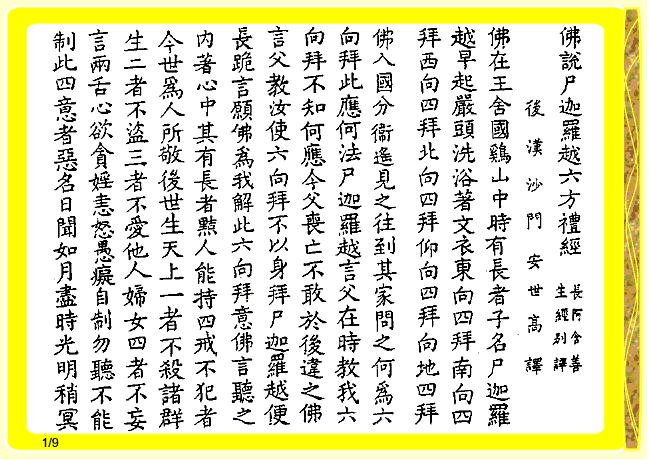 佛說尸迦羅越六方禮經
長阿含善
生經別譯
後漢沙門安世高譯
佛在王舍國鷄山中時有長者子名尸迦羅
越早起嚴頭洗浴著文衣東向四拜南向四
拜西向四拜北向四拜仰向四拜向地四拜
佛入國分衞遙見之往到其家問之何爲六
向拜此應何法尸迦羅越言父在時教我六
向拜不知何應今父喪亡不敢於後違之佛
言父教汝使六向拜不以身拜尸迦羅越便
長跪言願佛爲我解此六向拜意佛言聽之
內著心中其有長者黠人能持四戒不犯者
今世爲人所敬後世生天上一者不殺諸群
生二者不盜三者不愛他人婦女四者不妄
言兩舌心欲貪婬恚怒愚癡自制勿聽不能
制此四意者惡名日聞如月盡時光明稍冥
1/9